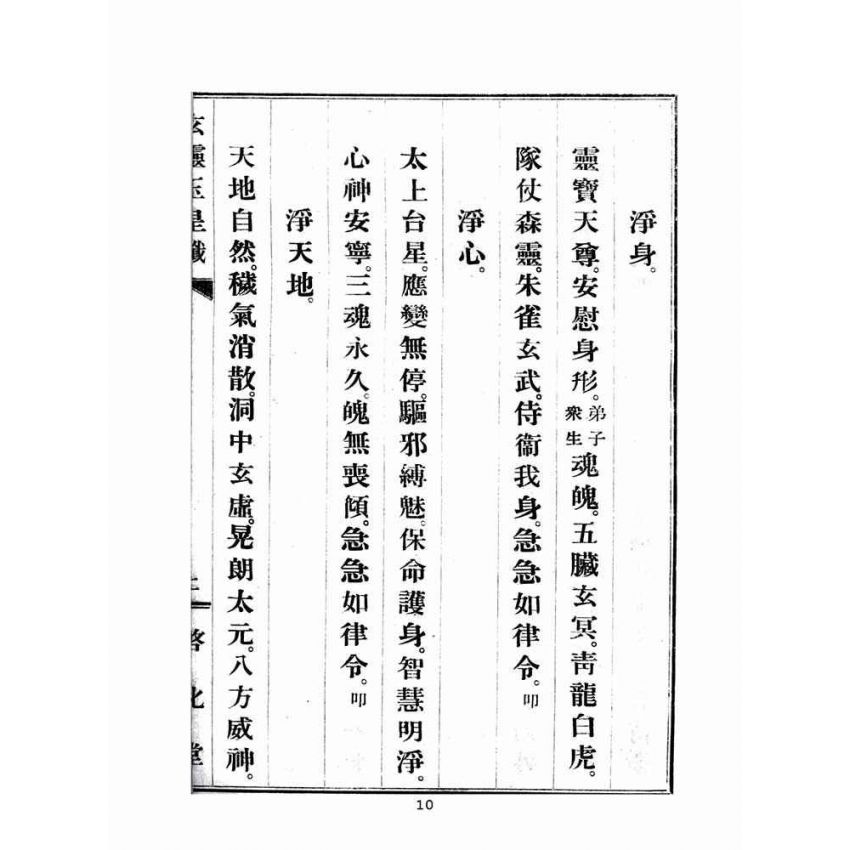 淨身。
靈寶天尊。安慰身形。弟子衆生魂魄。五臟玄冥。靑龍白虎。
隊仗森靈。朱雀玄武。侍衞我身。急急如律令。叩
淨心。
太上台星。應變無停。驅邪縛魅。保命護身。智慧明淨。
心神安寧。三魂永久。魄無喪傾。急急如律令。叩
淨天地。
天地自然。穢氣消散。洞中玄虛。晃朗太元。八方威神。
玄靈玉皇懺
啓化堂
10